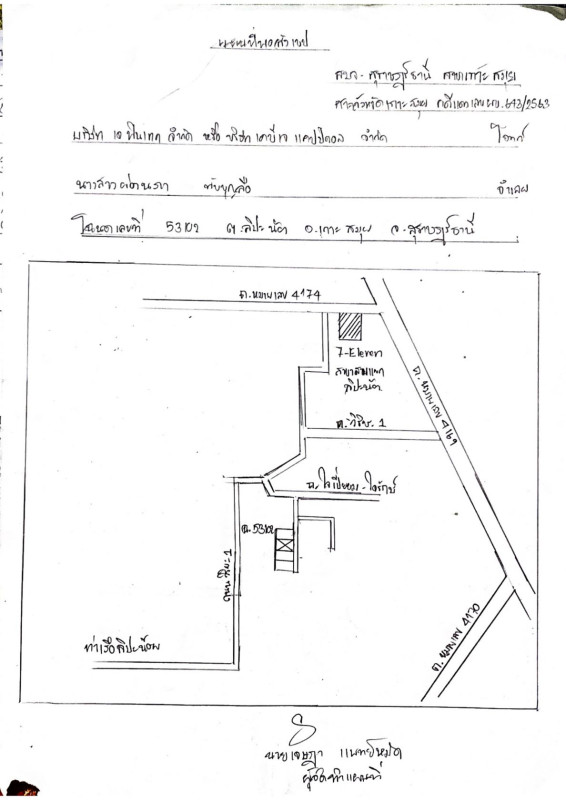 แผนที่พอสังเขป
สบจ. สุราษฎร์ธานี สาขาเกาะสมุย
ศาลจังหวัดเกาะสมุย คดีแดงเลข ผบ. 643/2563
บริษัท เจ ฟินเทค จำกัด หรือ บริษัท เคบี เจ แคปปิตอล จำกัด โจทก์
นางสาว จำเลย
โฉนดเลขที่ 53102 ต.ลิปะน้อย อ.เกาะสมุย จ.สุราษฎร์ธานี
ถ.หมายเลข 4174
7-Eleven
สาขาสามแยก
ลิปะน้อย
ถ.หมายเลข 4169
ถ.วิริยะ 1
ถ.ใจเปี่ยม-ใจรักษ์
ฉ. 53102
ถนนวิริยะ 1
ท่าเรือลิปะน้อย
ถ.หมายเลข 4170
นายเจษฎา แพทย์หมัด
ผู้จัดทำแผนที่